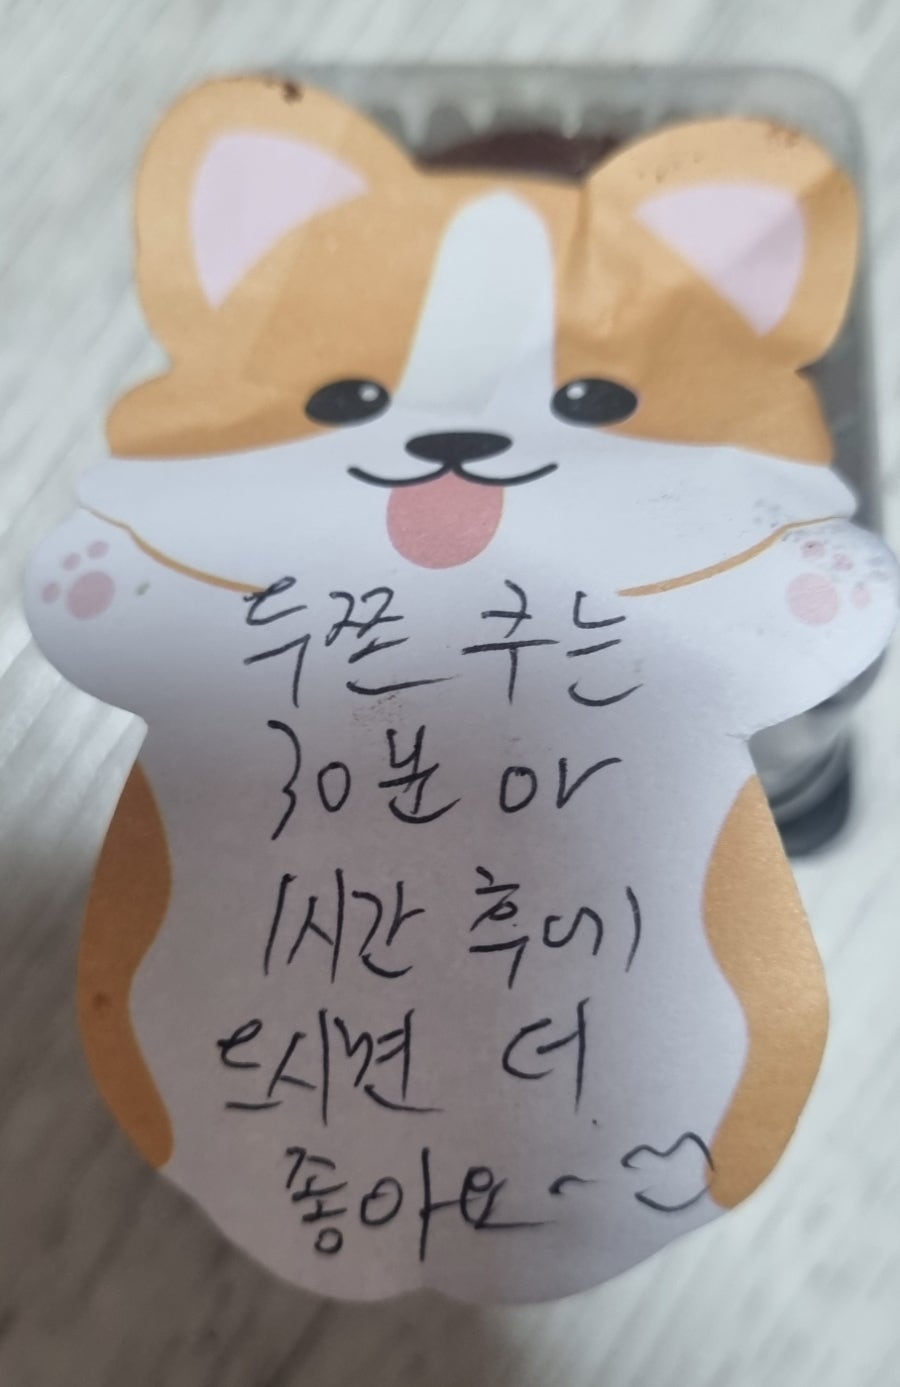 두쫀 쿠는
30분 아
1시간 후에
드시면 더
좋아요~